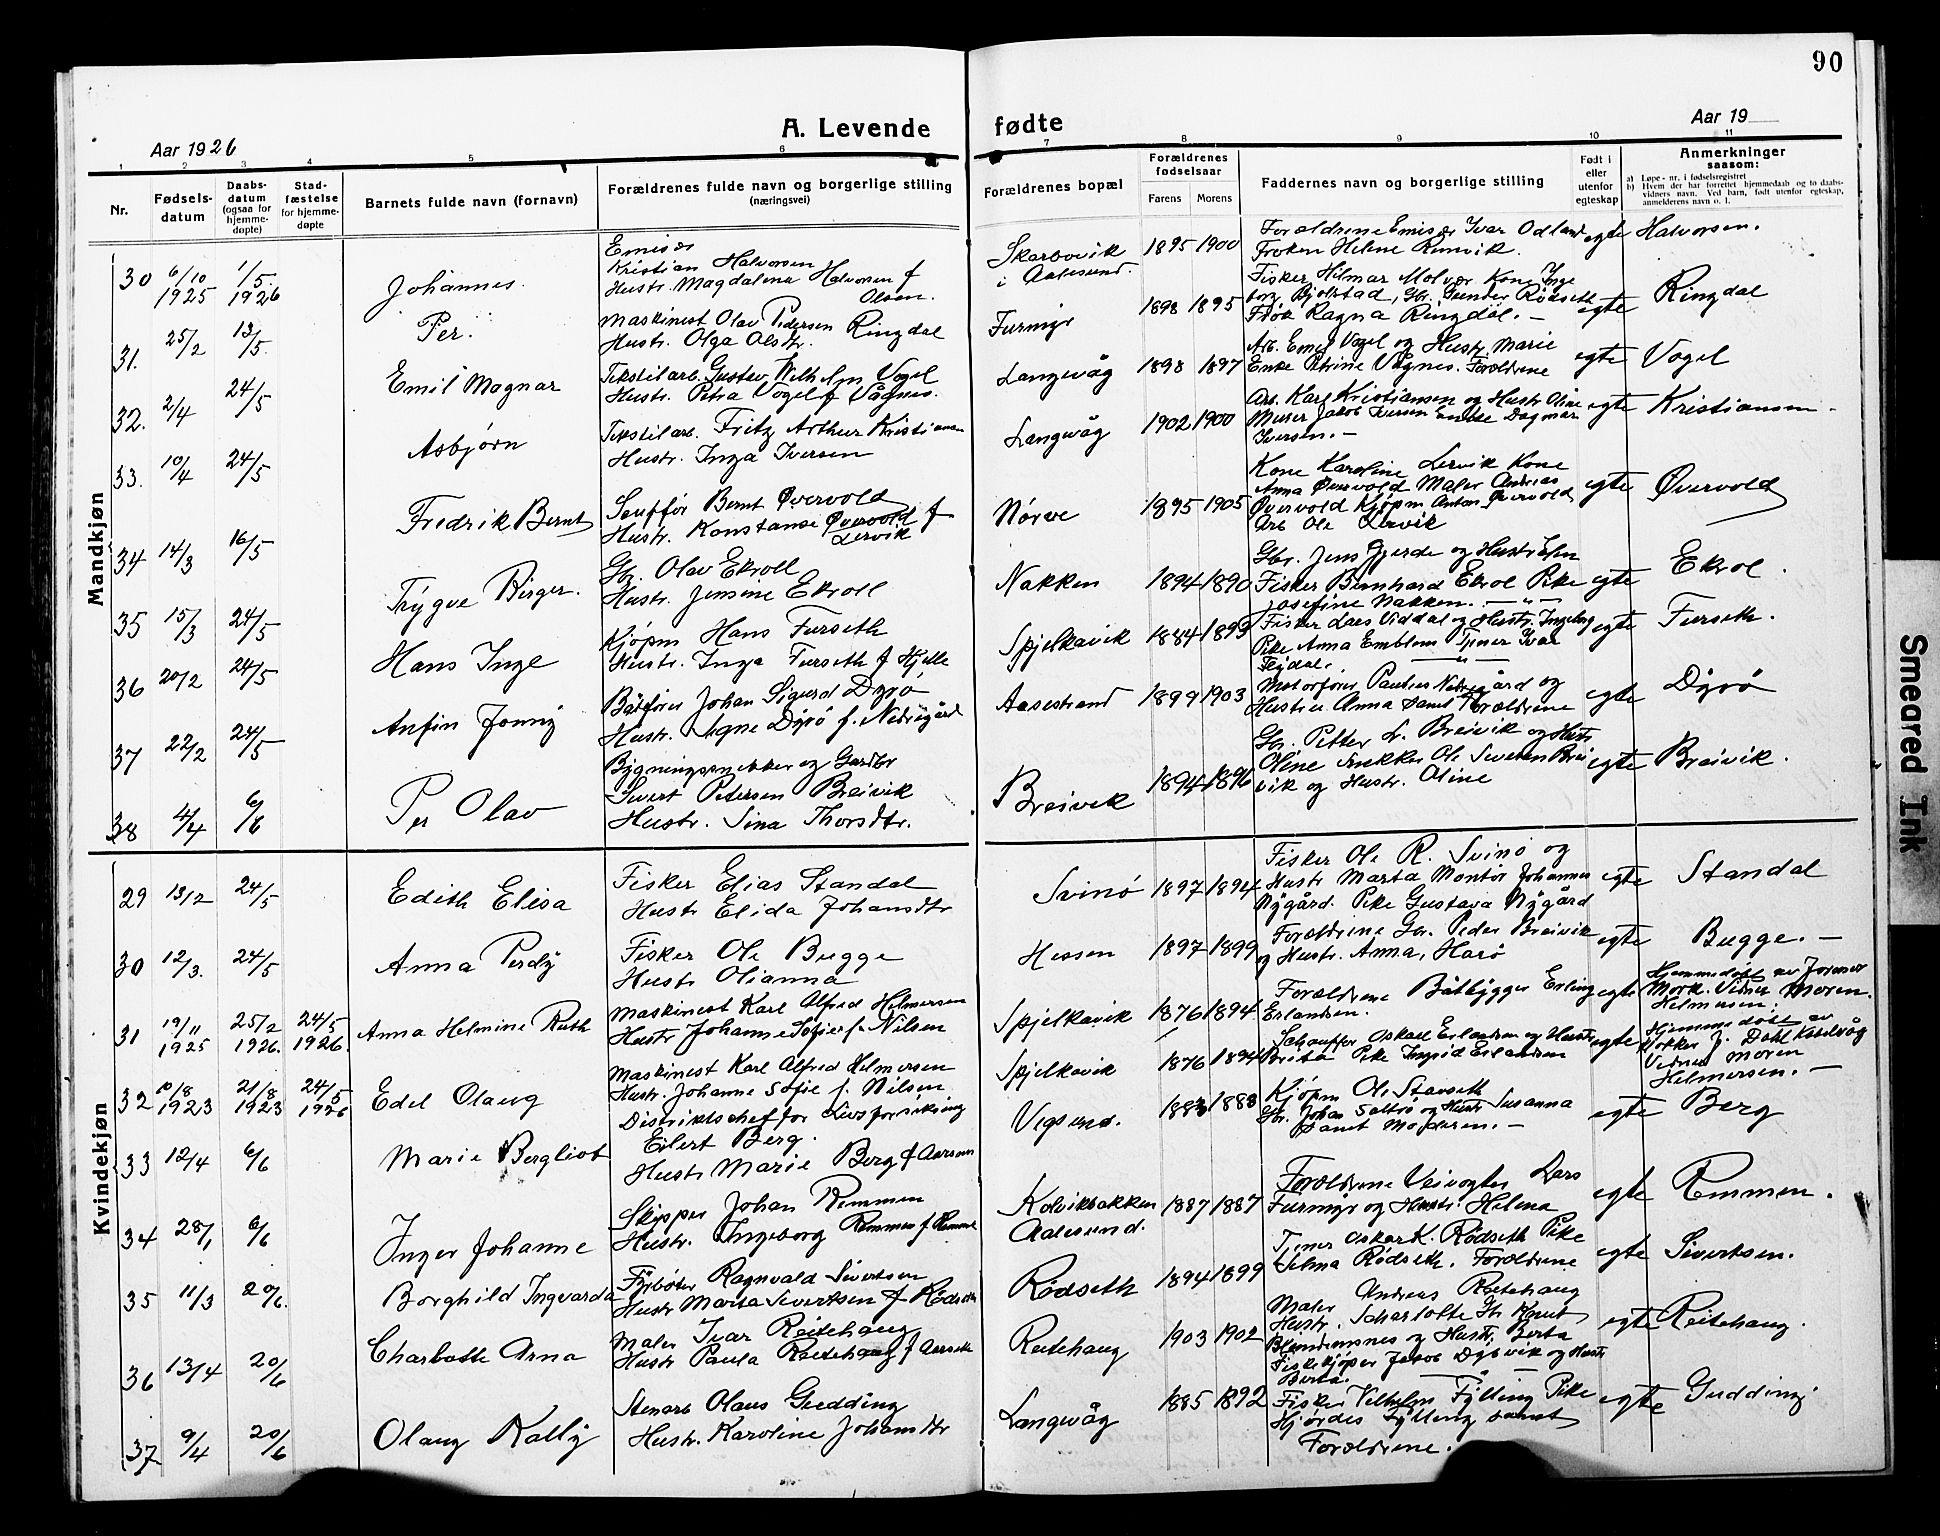 90
Aar 1926
A. Levende
fødte
Aar 19
1 2 3 4 5 6 7 8 9 10 11
Nr.
Fødsels-
datum
Daabs-
datum
(ogsaa for
hjemme-
døpte)
Stad-
fæstelse
for hjemme-
døpte
Barnets fulde navn (fornavn)
Forældrenes fulde navn og borgerlige stilling
(næringsvei)
Forældrenes bopæl
Forældrenes
fødselsaar
Farens Morens
Faddernes navn og borgerlige stilling
Født i
eller
utenfor
egteskap
Anmerkninger
saasom:
a) Løpe-nr. i fødselsregistret
b) Hvem der har forrettet hjemmedaab og to daabs-
vidners navn. Ved barn, født utenfor egteskap,
anmelderens navn o. l.
Mandkjøn
30 6/10 1925 1/5 1926 Johannes.
Emissær
Kristian Halvorsen
Hustr. Magdalena Halvorsen f
Olsen.
Skarbøvik
i Aalesund.
1895 1900
Forældrene Emisær Ivar Odland
Frøken Helene Rimvik.
egte Halvorsen.
31. 25/2 13/5. Per.
Maskinest Olav Pedersen Ringdal
Hustr. Olga Olsdtr.
Furmyr
1898 1895
Fisker Hilmar Molvær Kone Inge
borg Bjølstad, Gbr. Gunder Rødseth
Frøk Ragna Ringdal. –
egte Ringdal
32. 2/4 24/5 Emil Magnar
Tekstilarb. Gustav Wilhelm Vogel
Hustr. Petra Vogel f Vågnes.
Langevåg
1898 1897
Arb. Emil Vogel og Hustr Marie
Enke Petrine Vågnes. Forældrene
egte Vogel
33. 10/4 24/5 Asbjørn
Tekstilarb. Fritz Arthur Kristiansen
Hustr. Inga Iversen
Langevåg
1902 1900
Arb. Karl Kristiansen og Hustr Oline
Murer Jakob Iversen Dagmar
Iversen. –
egte Kristiansen –
34 14/3 16/5 Fredrik Bernt
Schuffør Bernt Øvervold
Hustr. Konstanse Øvervold f
Lervik
Nørve
1895 1905
Kone Karoline Lervik Kone
Anna Øvervold Maler Andreas
Øvervold Kjøpm Anton Øvervold
Arb Ole Lervik
egte Øvervold
35 15/3 24/5 Trygve Birger.
Gbr. Olav Ekroll
Hustr. Jensine Ekroll
Nakken
1894 1890
Gbr. Jens Gjerde og Hustr
Fisker Bernhard Ekrol Pike
Josefine Nakken. – " –
egte Ekrol.
36 20/2 24/5 Hans Inge
Kjøpm Hans Furseth
Hustr. Inga Furseth f Hjelle
Spjelkavik
1884 1899
Fisker Lars Viddal og Hustr. Ingeborg
Pike Anna Emblem Tjener Ivar
egte Furseth.
37 22/2 24/5 Anfin Jonny
Bådfører Johan Sigurd Dyrø
Hustr. Signe Dyrø f. Nedregård
Aasestrand
1899 1903
Motorfører Paulus Nedregård og
Hustru Anna samt Forældrene
egte Dyrø
38 4/4 6/6 Per Olav
Bygningssnekker og Gardbr
Sivert Petersen Breivik
Hustr. Sina Thorsdtr.
Breivik
1894 1896
Gbr. Petter L. Breivik og Hustr
Oline Snekker Ole Severen Brei
vik og Hustr. Oline
egte Breivik.
Kvindekjøn
29 13/2 24/5 Edith Elisa
Fisker Elias Standal
Hustr Elida Johansdtr
Svinø
1897 1894
Fisker Ole R. Svinø og
Hustr Marta Montør Johannes
Nygård. Pike Gustava Nygård
egte Standal
30 12/3. 24/5 Anna Perdy
Fisker Ole Bugge
Hustr Olianna
Hessen
1897 1899
Forældrene Gbr. Peder Breivik
og Hustr. Anna, Harø
egte Bugge. –
31 19/11 1925 25/2 1926. 24/5 1926. Anna Helmine Ruth
Maskinest Karl Alfred Helmersen
Hustr Johanne Sofie f. Nilsen
Spjelkavik
1876 1894
Forældrene Båtbygger Erling
Erlandsen.
egte
Hjemmedøbt av Jormor
Mork. Vidner Moren.
Helmersen.
32 10/8 1923 21/8 1923 24/5 1926 Edel Olaug
Maskinest Karl Alfred Helmersen
Hustr. Johanne Sofie f. Nilsen
Spjelkavik
1876 1894
Schauffør Oskar Erlandsen og Hustr
Brita Pike Ingrid Erlandsen
egte
Hjemmedøbt av
J. Dahl Kabelvåg
Vidner Moren
Helmersen. –
33 12/4 6/6 Marie Bergliot
Distriktschef for Livsforsikring
Eilert Berg.
Hustr Marie Berg f Aarsnes
Vegsund.
1883 1888
Kjøpm Ole Stavseth
Gbr. Johan Saltrø og Hustr Susanna
samt Moderen. –
egte Berg
34 28/1 6/6 Inger Johanne
Skipper Johan Remmen
Hustr. Ingeborg Remmen f. Remme
Kolvikbakken
Aalesund.
1887 1887
Forældrene Veivogter Lars
Furmyr og Hustr Helena
egte Remmen.
35 11/3 20/6. Borghild Ingvarda
Fyrbøter Ragnvald Sivertsen
Hustr Marta Sivertsen f Rødseth
Rødseth
1894 1899
Tjener Oskar K. Rødseth Pike
Selma Rødseth. Forældrene
egte Sivertsen.
36 13/4 20/6 Charlotte Arna
Maler Ivar Reitehaug
Hustr Paula Reitehaug f Aarseth
Reitehaug
1903 1902
Maler Andreas Reitehaug
Hustr. Scharlotte Gbr Knut
Blindemsnes og Hustr. Berta
Fiskekjøper Jakob Dybvik og Hustr
Berta.
egte Reitehaug.
37 9/4 20/6 Olaug Kally
Stenarb Olaus Gudding
Hustr. Karoline Johansdtr
Langevåg
1885 1892
Fisker Vilhelm Fylling Pike
Hjørdes Fylling samt
Forældrene.
egte Gudding
Smeared Ink